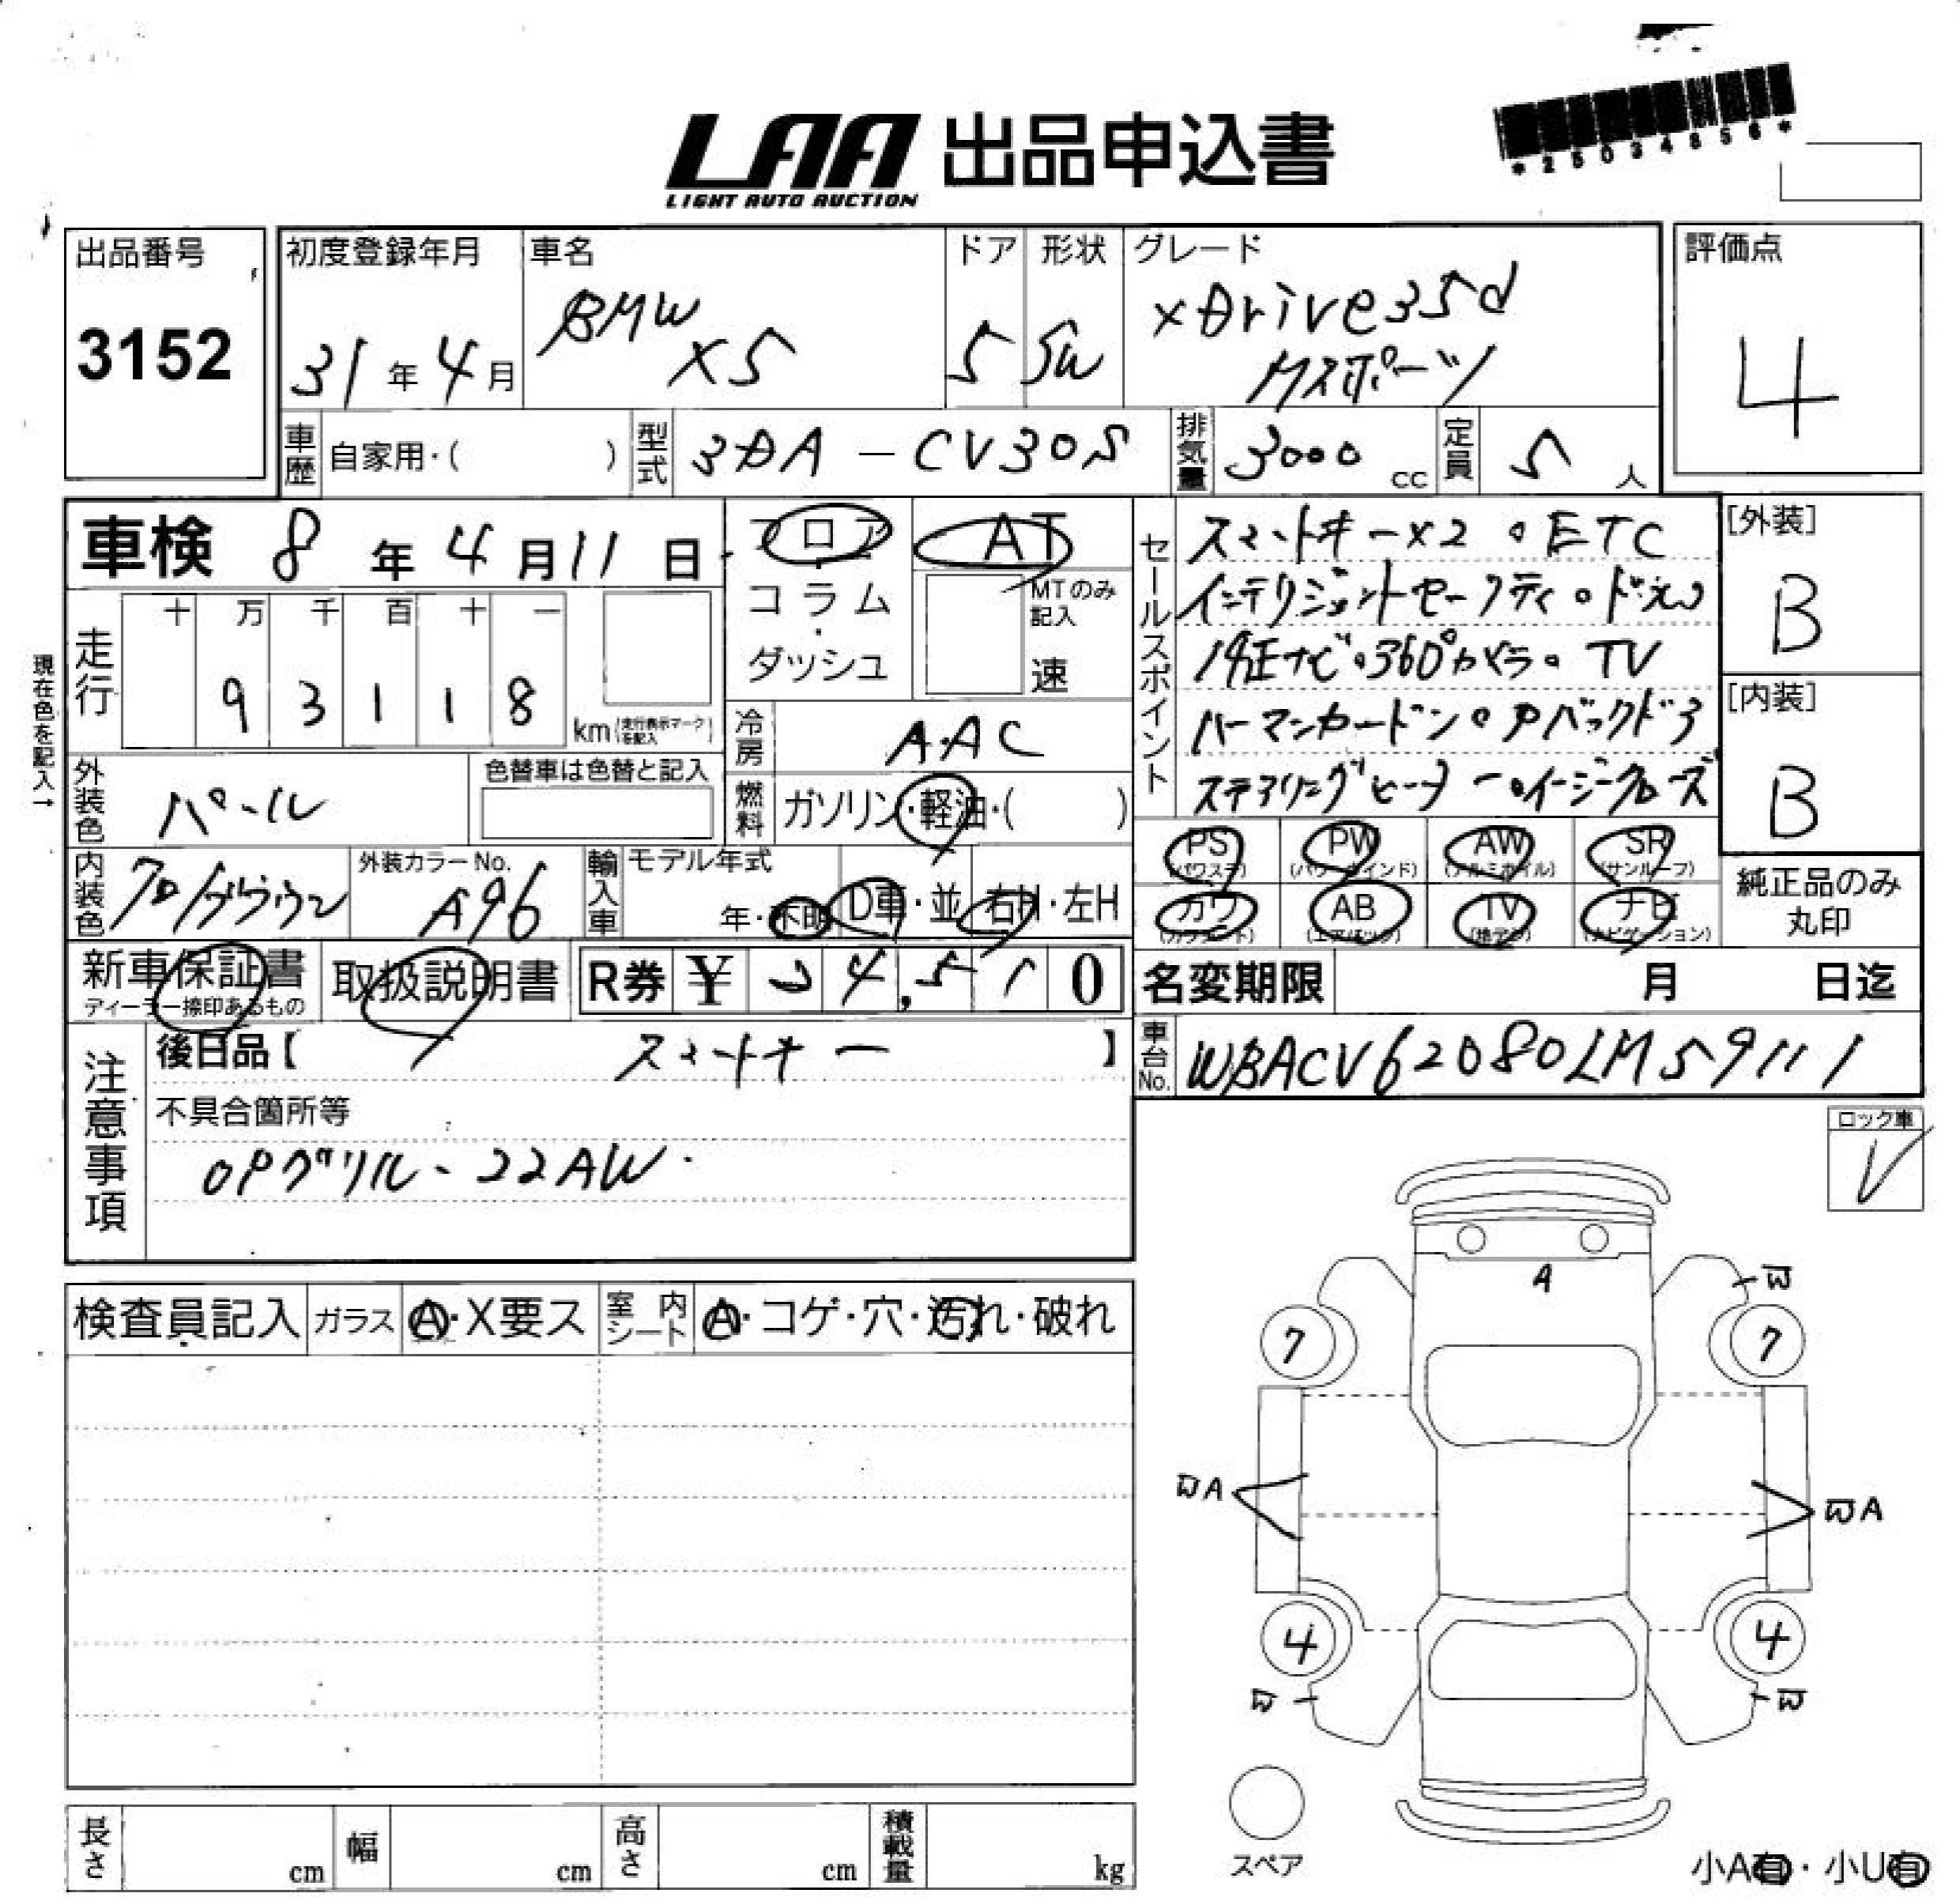 LAA 出品申込書
LIGHT AUTO AUCTION
*25034856*
出品番号
3152
初度登録年月
31年4月
車名
BMW
X5
ドア
5
形状
SW
グレード
xDrive35d
Mスポーツ
評価点
4
車歴 自家用・( )
型式 3DA-CV30S
排気量 3000 cc
定員 5 人
車検 8年4月11日
フロア
コラム
・
ダッシュ
AT
MTのみ
記入
速
現在色を記入→
走行
十 万 千 百 十 一
9 3 1 1 8
km(走行表示マークを記入)
冷房 A.AC
外装色 パール
色替車は色替と記入
燃料 ガソリン・軽油・( )
セールスポイント
スマートキーX2 。ETC
インテリジェントセーフティ。ドラレコ
純正ナビ。360°カメラ。TV
ハーマンカードン。Pバックドア
ステアリングヒーター。イージークローズ
[外装]
B
[内装]
B
PS (パワステ)
PW (パワーウインド)
AW (アルミホイル)
SR (サンルーフ)
カワ (カワシート)
AB (エアバッグ)
TV (地デジ)
ナビ (ナビゲーション)
純正品のみ
丸印
内装色
外装カラーNo.
A96
輸入車
モデル年式
年・不明
D車・並
右H・左H
新車保証書
ディーラー捺印あるもの
取扱説明書
R券 ¥ 24,510
名変期限 月 日迄
注意事項
後日品【 スマートキー 】
車台No. WBACV62080LM59111
不具合箇所等
OPグリル、22AW.
ロック車
V
検査員記入
ガラス
A・X要ス
室内シート
A・コゲ・穴・汚れ・破れ
A
W
7
7
WA
WA
4
4
W
W
スペア
小A有・小U有
長さ cm
幅 cm
高さ cm
積載量 kg